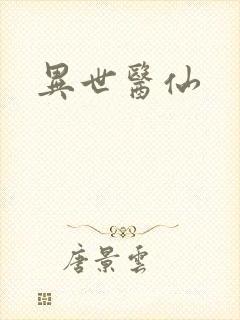 異世醫仙
唐景雲